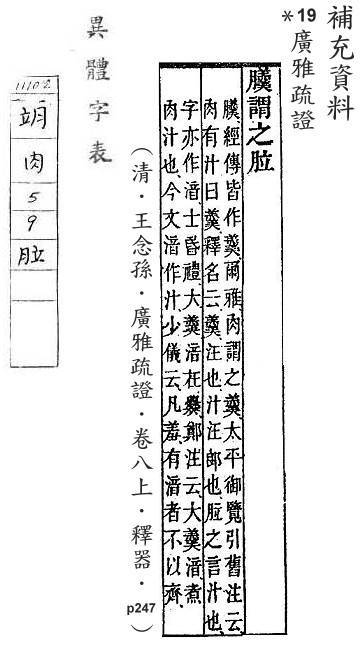 補充資料
*19 廣雅疏證
謂之
經傳皆作羹爾雅肉謂之羹太平御覽引舊注云
肉有汁曰羹釋名云羹汪也汁汪郎也之言汁也
字亦作湆士昏禮大羹湆在爨鄭注云大羹湆煮
肉汁也今文湆作汁少儀云凡羞有湆者不以齊
(清．王念孫．廣雅疏證．卷八上．釋器．p247)
異體字表
肉
5
9